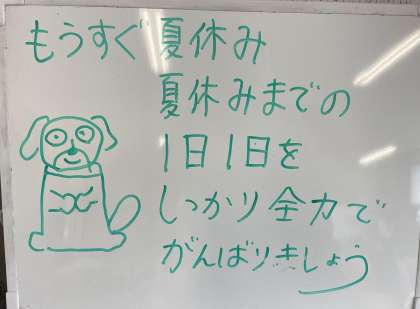 もうすぐ夏休み
夏休みまでの
1日1日を
しっかり全力で
がんばりましょう